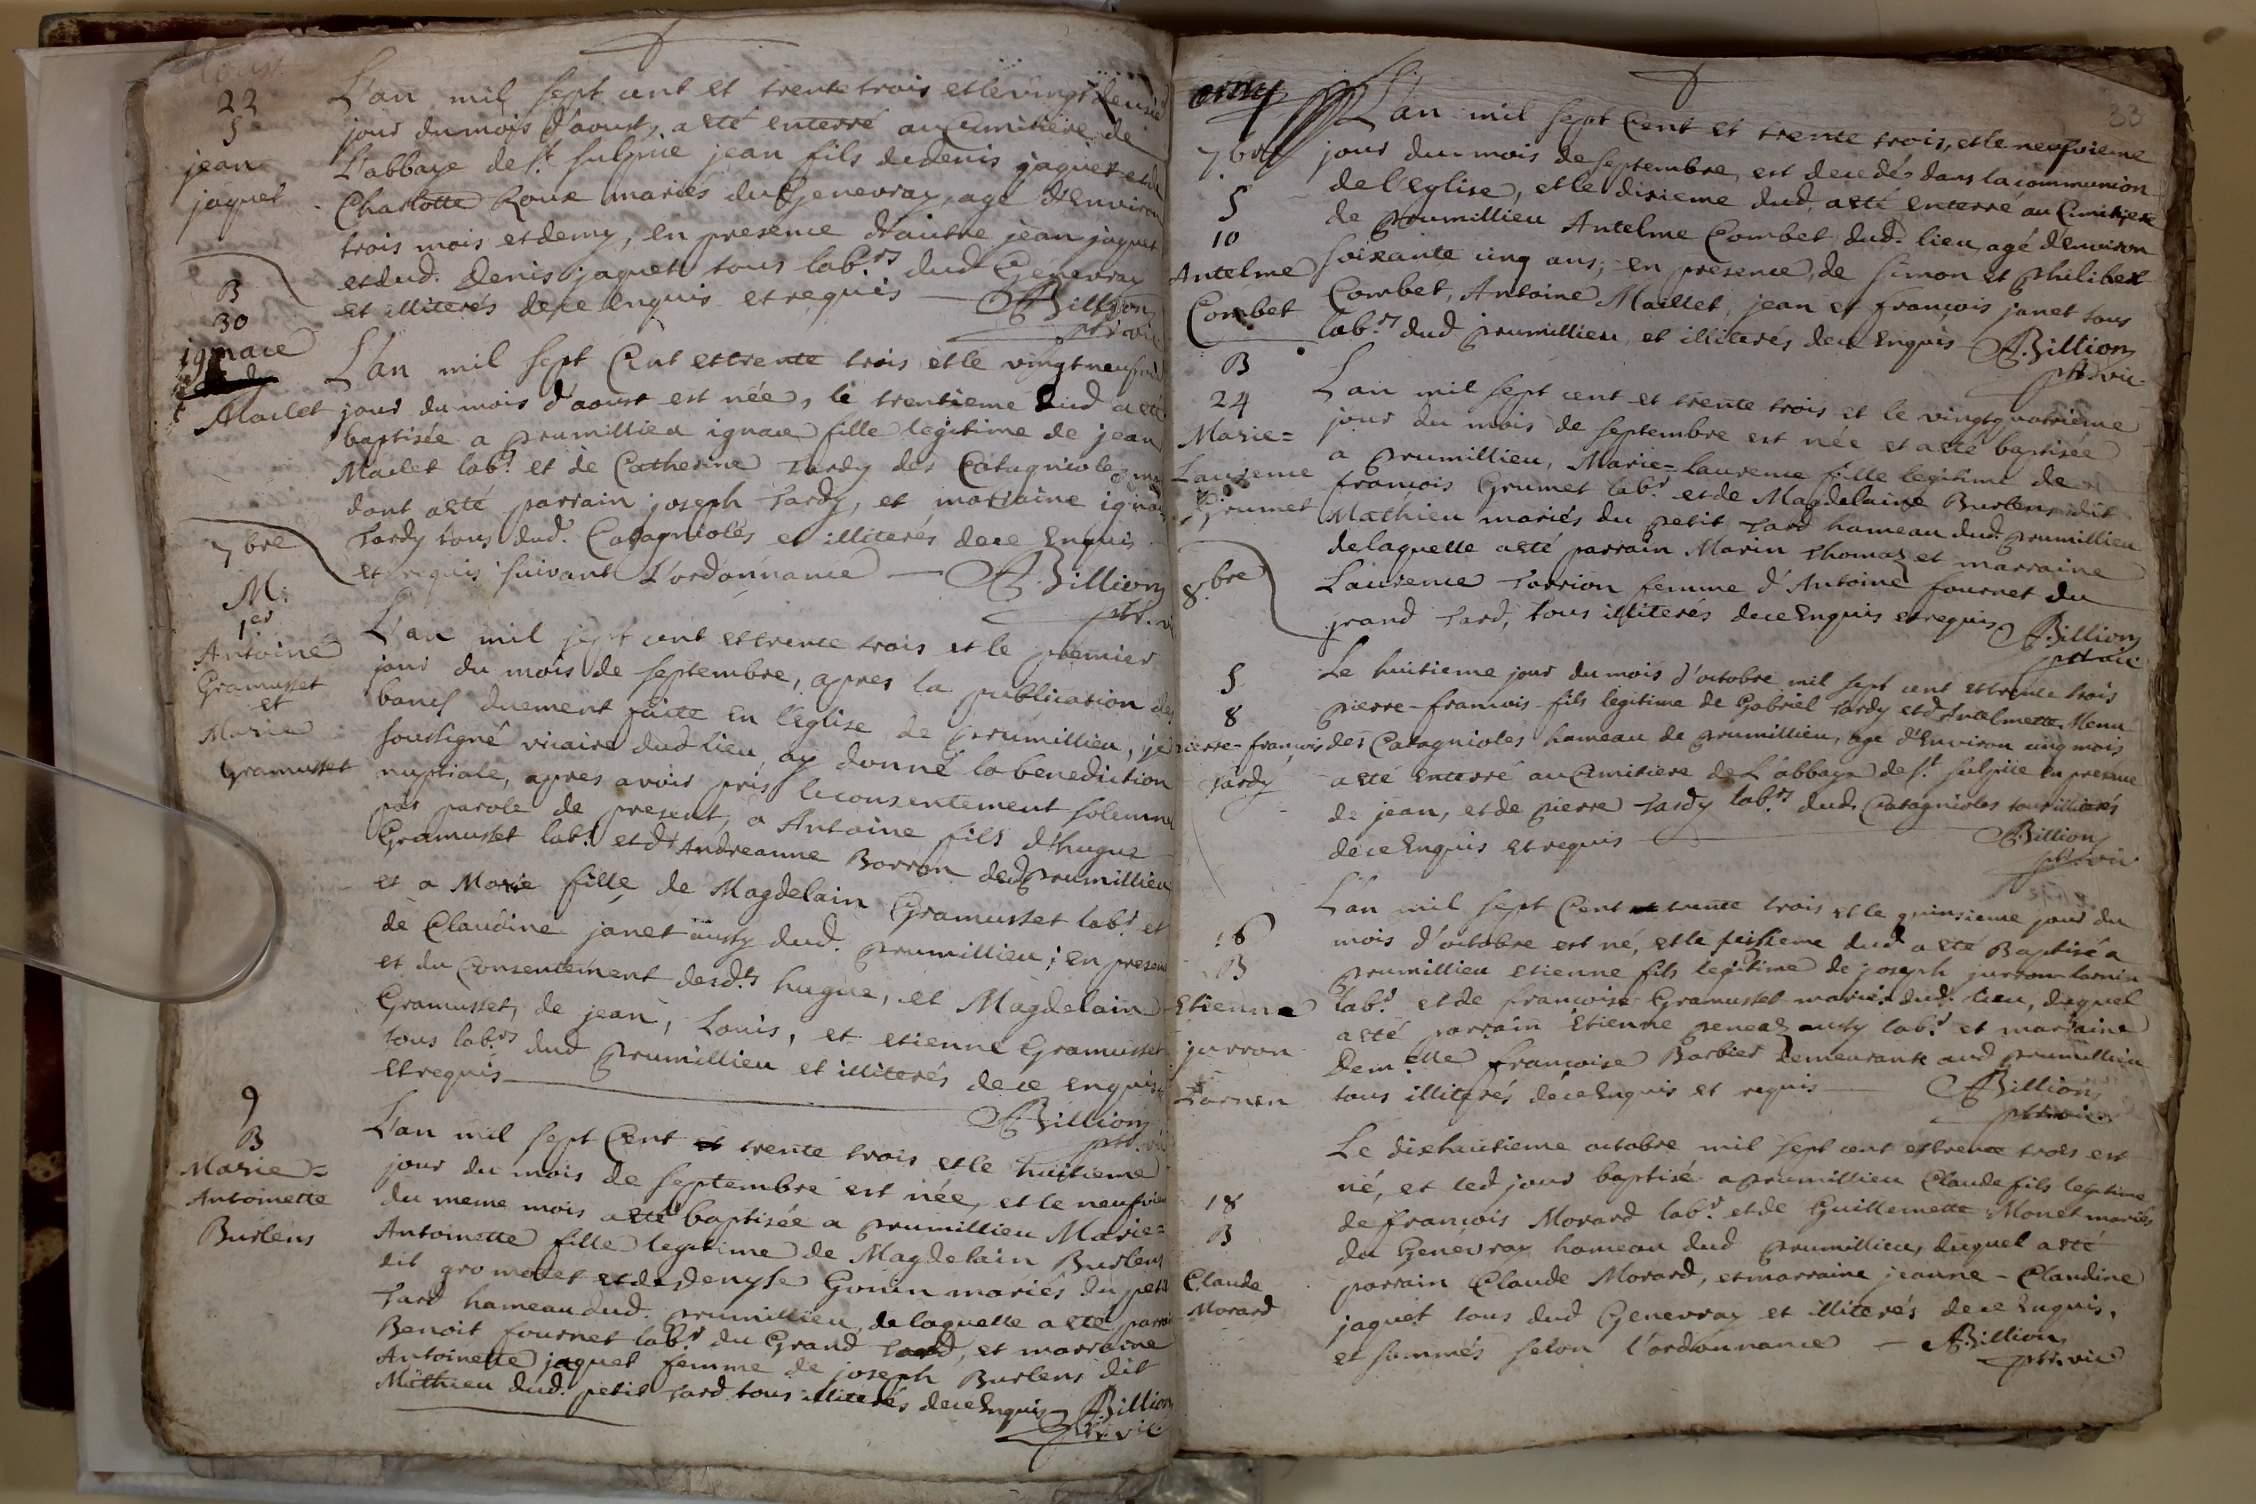 aoust
22
S
jean
jaquet
L'an mil sept cent et trente trois et le vingt deusie
jour du mois d'aoust, a esté enterré au Cimitiere de
L'abbaye de st. sulpice jean fils de denis jaquet et de
Charlotte Roux mariés du Genevray, agé d'Environ
trois mois et demy, en presence d'autre jean jaquet
et dud. denis jaquet tous labrs dud Genevray
et illiterés de ce enquis et requis — A Billion
ptr. vic
B
30
ignace
Maclet
L'an mil sept Cent et trente trois et le vingt neufvie
jour du mois d'aoust est née, le trentieme dud a esté
baptisée a prumillieu ignace fille legitime de jean
Maclet labr. et de Catherine Tardy des Catagnioles
dont a esté parrain joseph Tardy, et marraine ignace
Tardy tous dud. Catagnioles et illiterés de ce Enquis
et requis suivant L'ordonnance — A. Billion
ptr. vi
7bre
M.
1er
Antoine
Gramusset
et
Marie
Gramusset
L'an mil sept cent et trente trois et le premier
jour du mois de septembre, apres la publication des
bancs duement faite En l'Eglise de prumillieu, je
soussigné vicaire dud lieu ay donné la benediction
nuptiale, apres avoir pris le consentement solemne
par parole de present, a Antoine fils d'hugue
Gramusset labr. et d'Andreanne Borron dud prumillieu
et a Marie fille de Magdelain Gramusset labr. et
de Claudine janet aussy dud. prumillieu; en presence
et du Consentement desdts hugue, et Magdelain
Gramusset, de jean, Louis, et etienne Gramusset
tous labrs dud prumillieu et illiterés de ce enquis
et requis — A Billion
ptr. vic
9
B
Marie=
Antoinette
Burlens
L'an mil sept Cent et trente trois et le huitieme
jour du mois de septembre est née, et le neufvie
du meme mois a esté baptisée a prumillieu Marie=
Antoinette fille legitime de Magdelain Burlens
dit gro momet et de denyse Gonin mariés du petit
Tard hameau dud. prumillieu, de laquelle a esté parrain
Benoit fournet labr. du Grand Tard, et marraine
Antoinette jaquet femme de joseph Burlens dit
Mathieu dud. petit Tard tous illiterés de ce Enquis A Billion
ptr. vic
33
7bre
S
10
Antelme
Combet
L'an mil sept Cent et trente trois, et le neufvieme
jour du mois de septembre, est decedés dans la communion
de l'Eglise, et le dixieme dud, a esté enterré au Cimitiere
de prumillieu Antelme Combet dud. lieu, agé d'environ
soixante cinq ans; en presence, de simon et philibert
Combet, Antoine Maillet, jean et francois janet tous
labrs dud prumillieu, et illiterés de ce Enquis A. Billion
ptr. vic
B
24
Marie=
Laurence
Grumet
L'an mil sept cent et trente trois et le vingtquatrieme
jour du mois de septembre est née et a esté baptisée
a prumillieu, Marie=laurence fille legitime de
francois Grumet labr. et de Magdelaine Burlens dit
Mathieu mariés du petit Tard hameau dud. prumillieu
de laquelle a esté parrain Marin Thomas et marraine
Laurence Tarrion femme d'Antoine fournet du
grand Tard, tous illiterés de ce Enquis et requis A. Billion
ptr. vic
8.bre
S
8
pierre-francois
Tardy
Le huitieme jour du mois d'octobre mil sept cent et trente trois
pierre-francois fils legitime de Gabriel Tardy et d'Antelmette Menu
des Catagnioles hameau de prumillieu, age d'Environ cinq mois
a esté enterré au Cimitiere de L'abbaye de st. sulpice en presence
de jean, et de pierre Tardy labrs dud. Catagnioles tous illiterés
de ce Enquis et requis — A Billion
ptr. vic
16
B
Etienne
jurron
Larnin
L'an mil sept Cent et trente trois et le quinsieme jour du
mois d'octobre est né, et le seisieme dud a esté Baptisé a
prumillieu etienne fils legitime de joseph jurron-larnin
labr. et de francoise Gramusset mariés dud. lieu, duquel
a esté parrain Etienne peneaz aussy labr. et marraine
Dem.elle francoise Barbier demeurante aud prumillieu
tous illiterés de ce Enquis et requis — A Billion
ptr. vic
18
B
Claude
Morard
Le dixhuitieme octobre mil sept cent et trente trois est
né, et led jour baptisé a prumillieu Claude fils legitime
de francois Morard labr. et de Guillemette Monet mariés
du Genevray hameau dud prumillieu, duquel a esté
parrain Claude Morard, et marraine jeanne-Claudine
jaquet tous dud Genevray et illiterés de ce Enquis,
et sommés selon l'ordonnance — A. Billion
ptr. vic